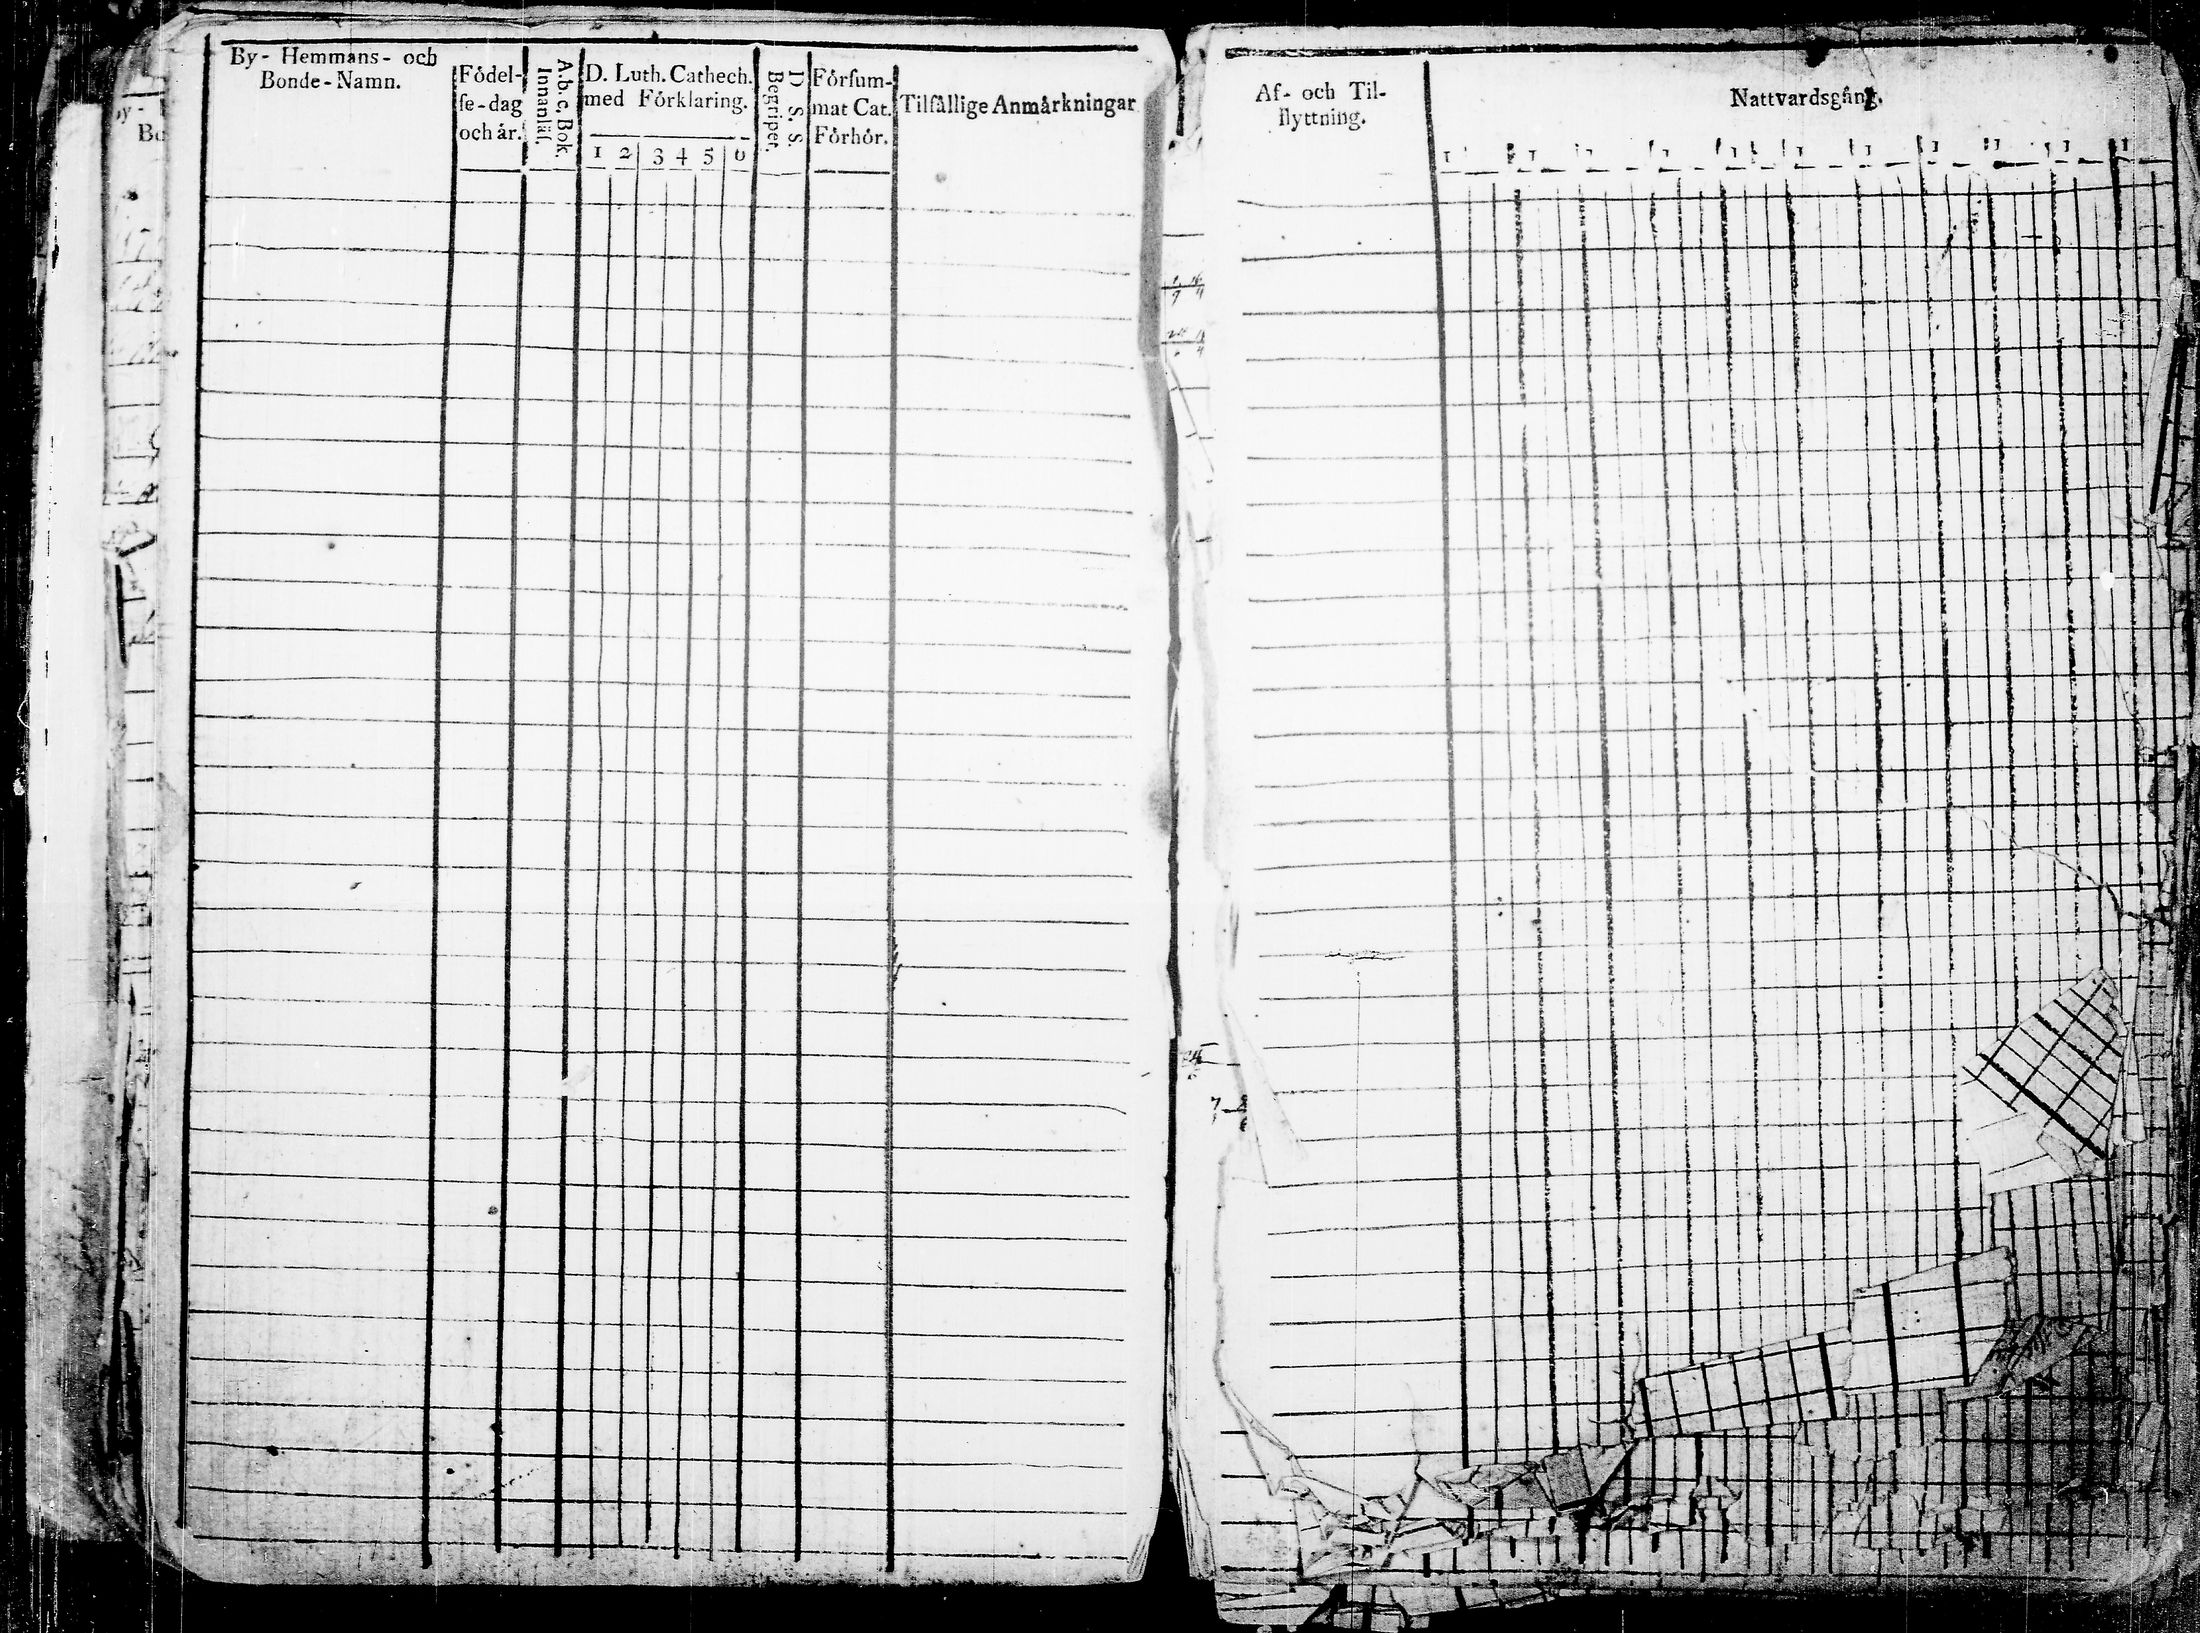 By- Hemmans- och
Bonde-Namn.
Födel-
se-dag
och år.
A.b.c.Bok.
Innanläs.
D. Luth. Cathech.
med Förklaring.
1 2 3 4 5 6
D. S. S.
Begriper.
Försum-
mat Cat.
Förhör.
Tilfällige Anmärkningar
Af- och Til-
flyttning.
Nattvardsgång.